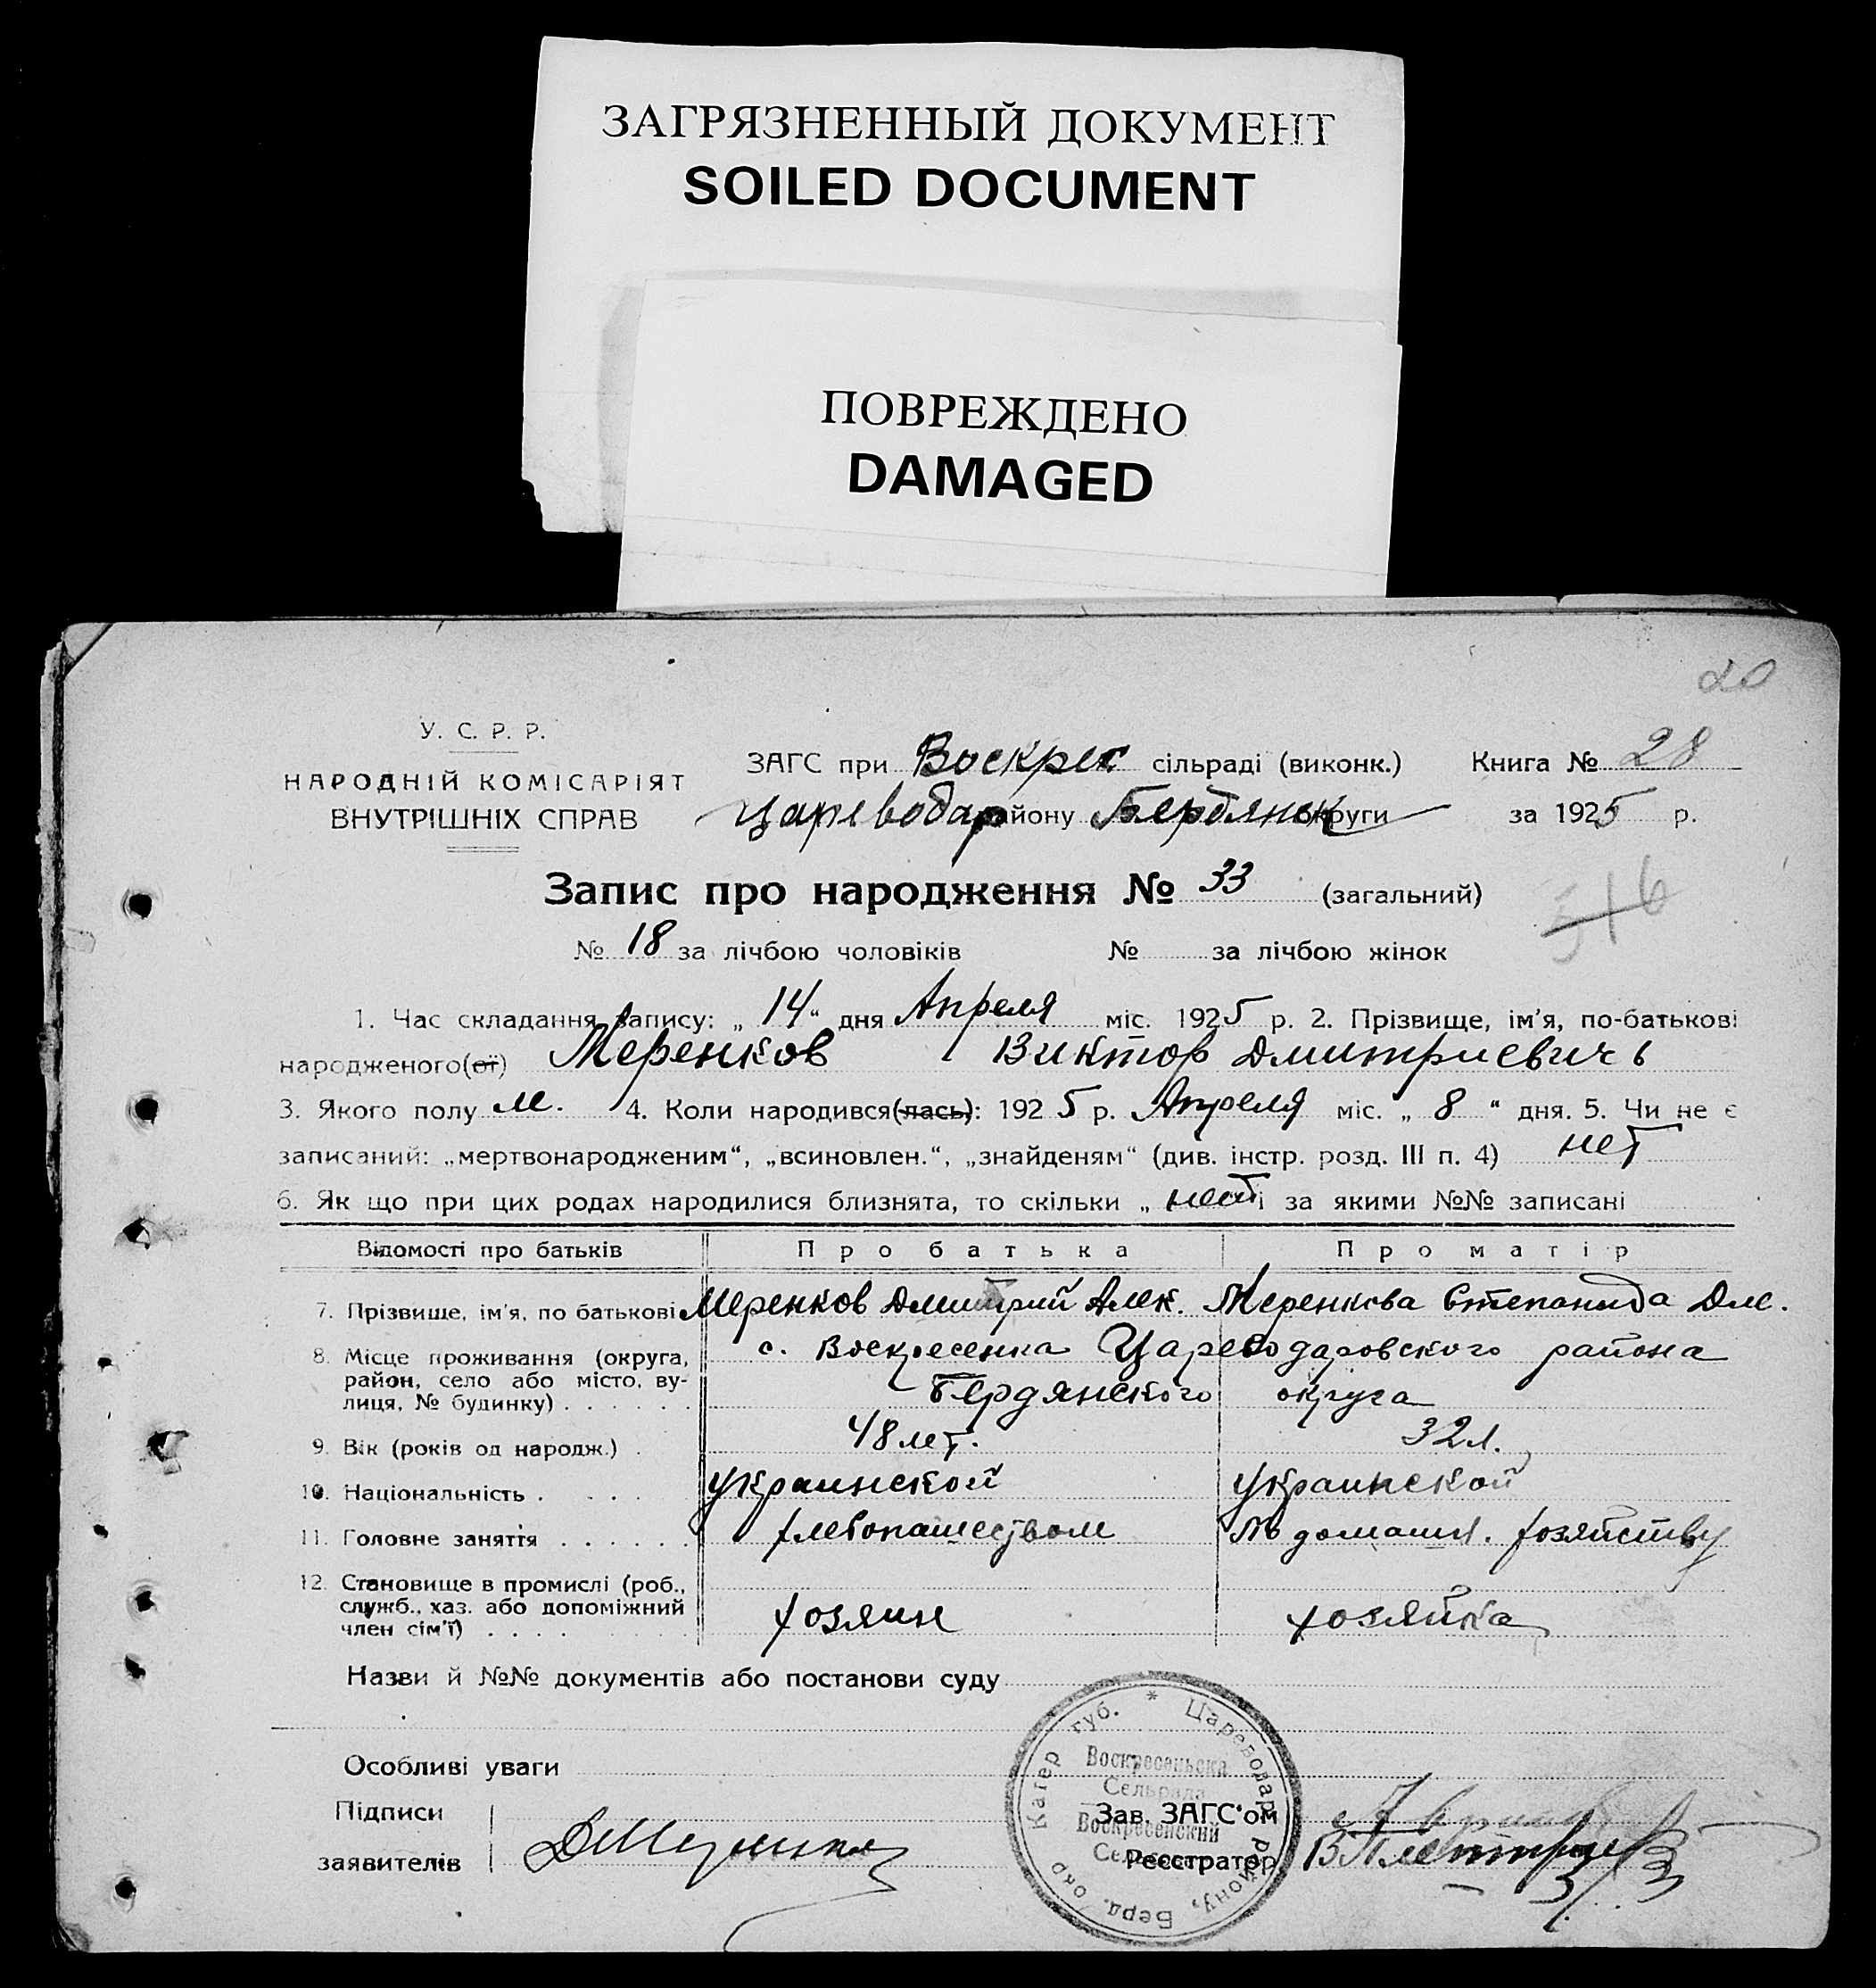 ЗАГРЯЗНЕННЫЙ ДОКУМЕНТ
SOILED DOCUMENT
ПОВРЕЖДЕНО
DAMAGED
20
У. С. Р. Р.
НАРОДНІЙ КОМІСАРІЯТ
ВНУТРІШНІХ СПРАВ
ЗАГС при Воскрес сільраді (виконк.) Книга № 28
Цареводар району Бердянск округи за 1925 р.
Запис про народження № 33 (загальний)
№ 18 за лічбою чоловіків № за лічбою жінок
1. Час складання запису: „ 14 “ дня Апреля міс. 1925 р. 2. Прізвище, ім'я, по-батькові
народженого(ої) Меренков Виктор Дмитриевичь
3. Якого полу м. 4. Коли народився(лась): 1925 р. Апреля міс. „ 8 “ дня. 5. Чи не є
записаний: „мертвонародженим“, „всиновлен.“, „знайденям“ (див. інстр. розд. III п. 4) нет
6. Як що при цих родах народилися близнята, то скільки „ нет і за якими №№ записані
Відомості про батьків Про батька Про матір
7. Прізвище, ім'я, по батькові Меренков Дмитрий Алек. Меренкова Степанида Дм.
8. Місце проживання (округа, с. Воскресенка Цареводаровского района
район, село або місто, ву-
лиця, № будинку) . . . . . . Бердянского округа
9. Вік (років од народж.) . 48 лет. 32 л.
10. Національність . . . . Украинской Украинской
11. Головне заняття . . . . . . хлебопашеством По домашн. хозяйству
12. Становище в промислі (роб.,
служб., хаз. або допоміжний хозяин хозяйка
член сім'ї) . . . .
Назви й №№ документів або постанови суду
Особливі уваги
Підписи
заявителів
Зав. ЗАГС'ом
Реєстратор
* Цареводар. району, Берд. окр Катер губ.
Воскресенська
Сельрада
Воскресенский